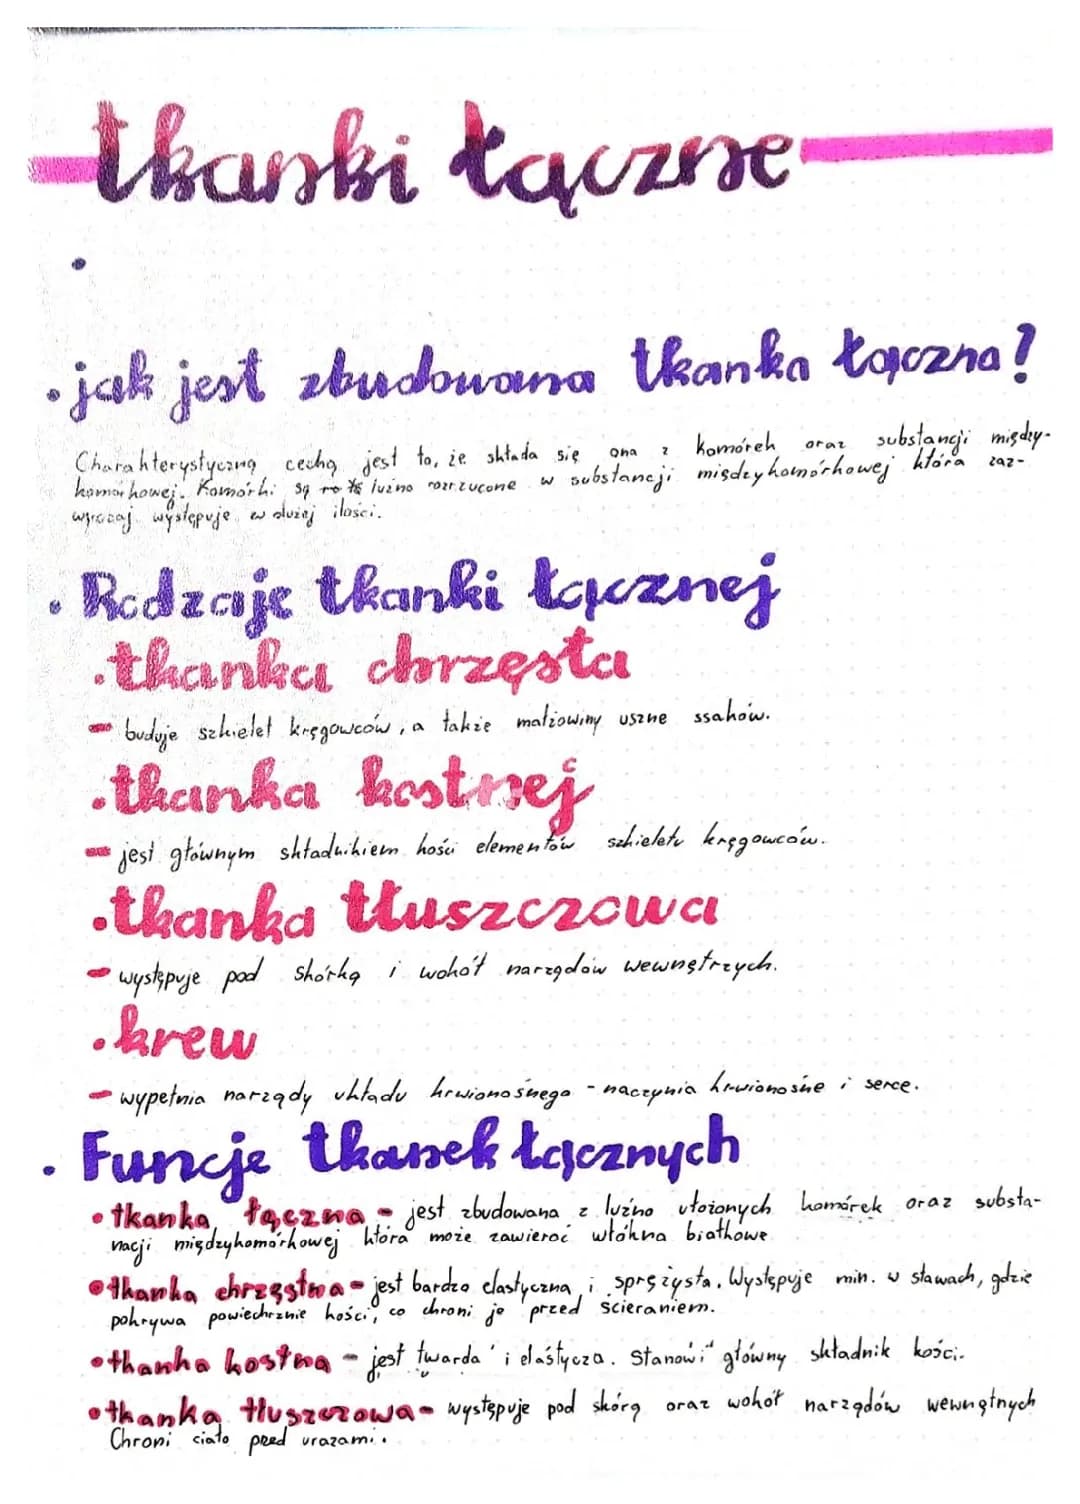 tkanki łączne
• jak jest zbudowana tkanka łączna?
Charakterystyczną cechą jest to, że składa się ona z komórek oraz substancji między-
komórkowej. Komórki są luźno rozrzucone w substancji międzykomórkowej która zaz-
wyczaj występuje w dużej ilości.
• Rodzaje tkanki łącznej
• tkanka chrzęsta
- buduje szkielet kręgowców, a także małżowiny uszne ssaków.
• tkanka kostnej
- jest głównym składnikiem kości elementów szkieletu kręgowców.
• tkanka tłuszczowa
- występuje pod skórką i wokół narządów wewnętrzych.
• krew
- wypełnia narządy układu krwionośnego - naczynia krwionośne i serce.
• Funcje tkanek łącznych
• tkanka łączna - jest zbudowana z luźno ułożonych komórek oraz substa-
nacji międzykomórkowej która może zawierać włókna białkowe
• tkanka chrzęstna - jest bardzo elastyczna i sprężysta. Występuje min. w stawach, gdzie
pokrywa powiechrznie kości, co chroni je przed ścieraniem.
• tkanka kostna - jest twarda i elastycza. Stanowi główny składnik kości.
• tkanka tłuszczowa - występuje pod skórą oraz wokół narządów wewnętnych
Chroni ciało przed urazami.